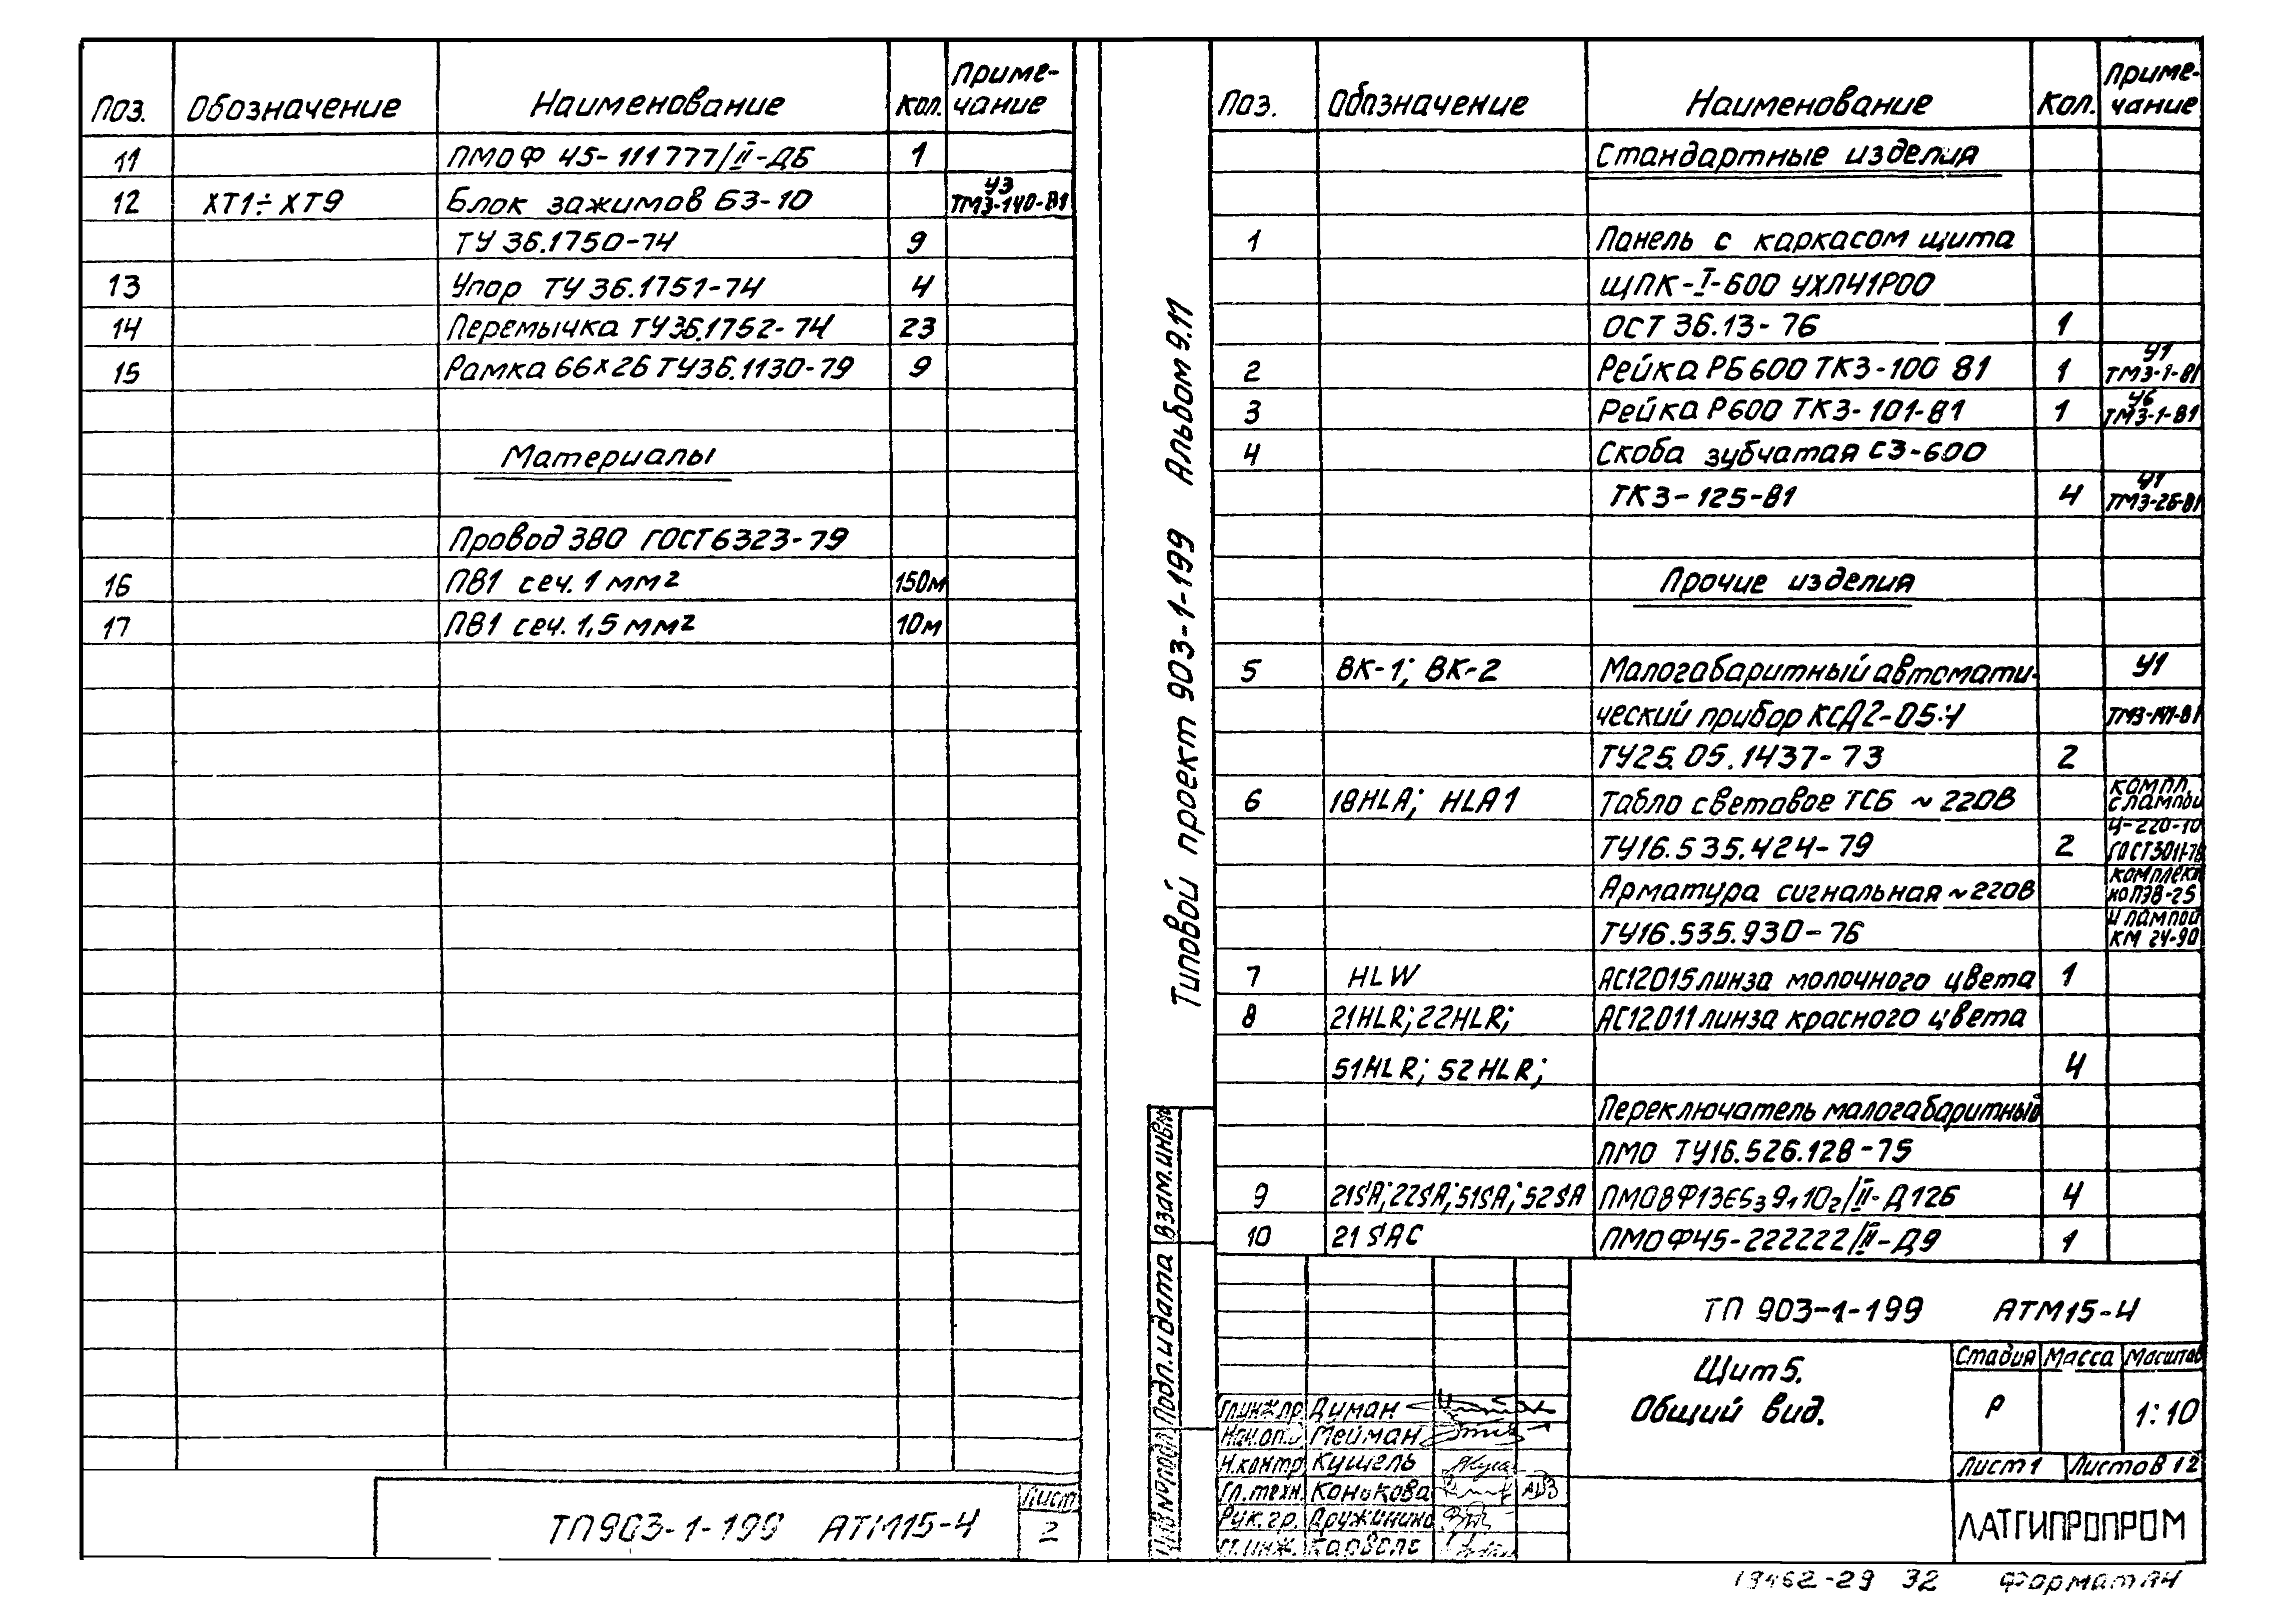 Поз. Обозначение Наименование Кол. Приме-
чание
11 ПМОФ 45-111777/II-ДБ 1
12 ХТ1÷ХТ9 Блок зажимов БЗ-10 У3 ТМ3-140-81
ТУ 36.1750-74 9
13 Упор ТУ 36.1751-74 4
14 Перемычка ТУ36.1752-74 23
15 Рамка 66х26 ТУ36.1130-79 9
Материалы
Провод 380 ГОСТ 6323-79
16 ПВ1 сеч. 1 мм² 150м
17 ПВ1 сеч. 1,5 мм² 10м
ТП903-1-199 АТМ15-4
Лист
2
Типовой проект 903-1-199 Альбом 9.11
Взам.инв№
Подп.и дата
Инв№подл
Поз. Обозначение Наименование Кол. Приме-
чание
Стандартные изделия
1 Панель с каркасом щита
ЩПК-I-600 УХЛ41Р00
ОСТ 36.13-76 1
2 Рейка РБ600 ТК3-100 81 1 У1 ТМ3-1-81
3 Рейка Р600 ТК3-101-81 1 У6 ТМ3-1-81
4 Скоба зубчатая СЗ-600
ТК3-125-81 4 У1 ТМ3-26-81
Прочие изделия
5 ВК-1; ВК-2 Малогабаритный автомати- У1
ческий прибор КСД2-054 ТМ3-141-81
ТУ25.05.1437-73 2
6 18HLA; HLA1 Табло световое ТСБ ~220В компл. с лампой
ТУ16.535.424-79 2 Ц-220-10 ГОСТ5011-78
Арматура сигнальная ~220В комплект но ПЭВ-25
ТУ16.535.930-76 и лампой КМ 24-90
7 HLW АС12015 линза молочного цвета 1
8 21HLR; 22HLR; АС12011 линза красного цвета
51HLR; 52HLR; 4
Переключатель малогабаритный
ПМО ТУ16.526.128-75
9 21SA; 22SA; 51SA; 52SA ПМОВФ13Е5₃9₁10₂/II-Д126 4
10 21SAC ПМОФ45-222222/II-Д9 1
ТП 903-1-199 АТМ15-4
Щит 5.
Общий вид.
Стадия Масса Масштаб
Р 1:10
Лист 1 Листов 12
ЛАТГИПРОПРОМ
Гл.инж.пр Думан
Нач.отд Мейман
Н.контр Кушель
Гл.техн. Конюкова
Рук.гр. Дружинина
Ст.инж. Карвеле
19462-29 32 Формат А4